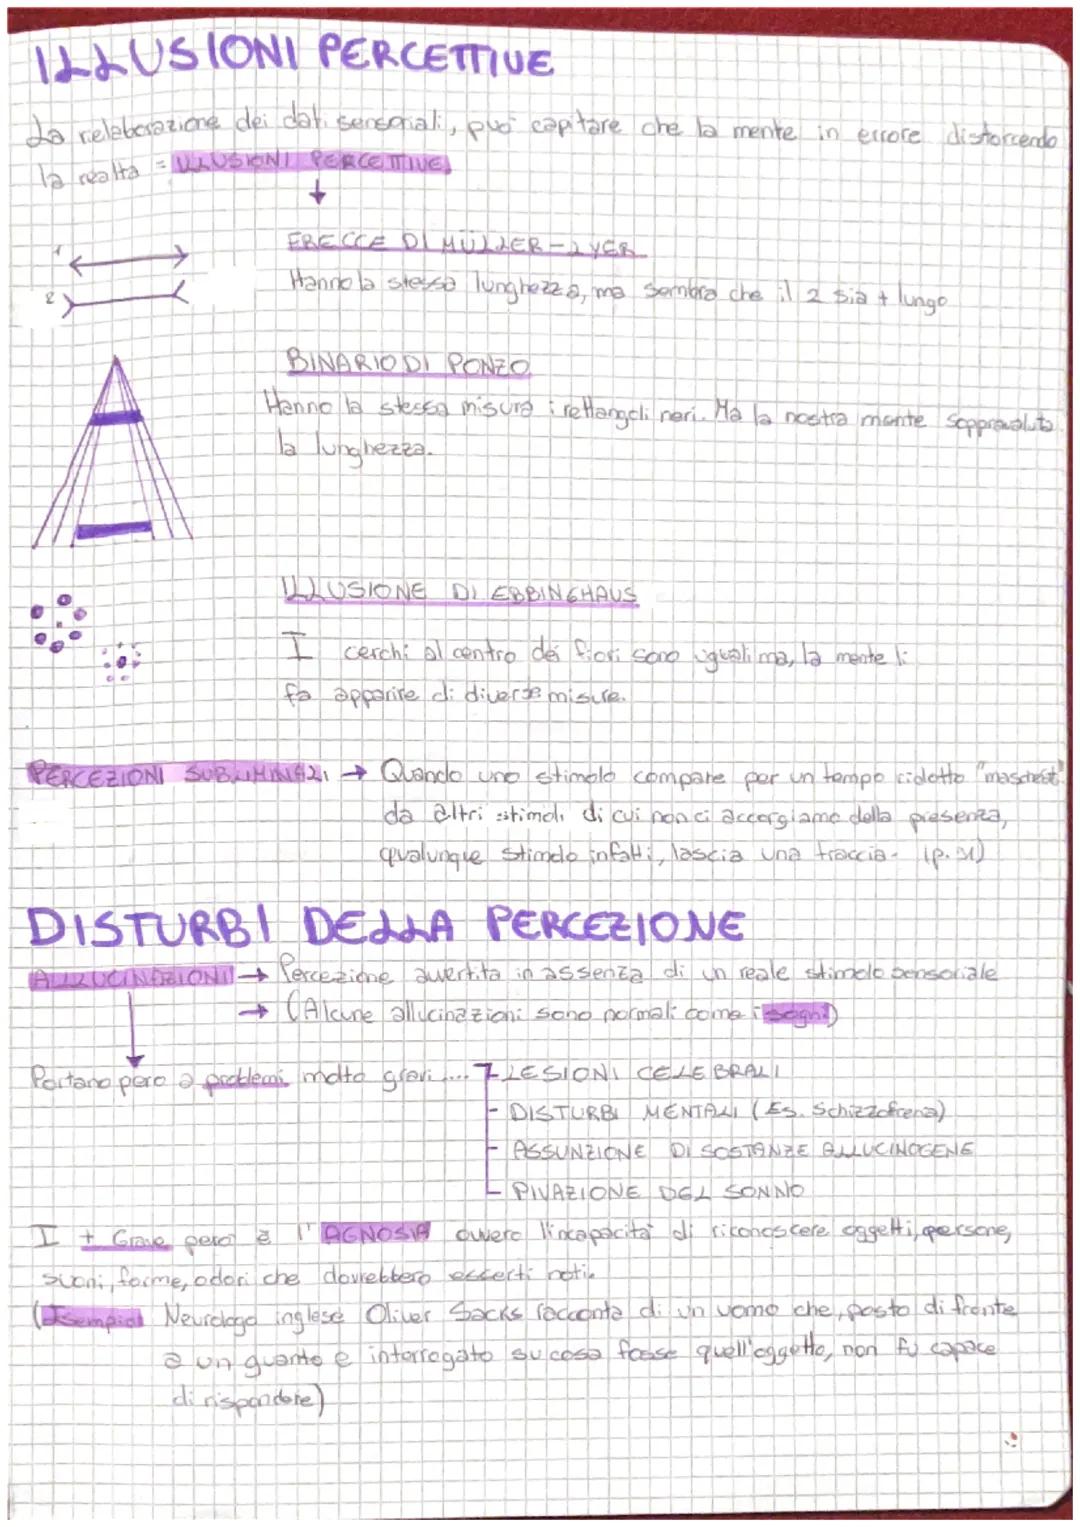 ILLUSIONI PERCETTIVE
La rielaborazione dei dati sensoriali, può capitare che la mente in errore distorcendo
la realta = ILLUSIONI PERCETTIVE
FRECCE DI MÜLLER-LYER
1
Hanno la stessa lunghezza, ma sembra che il 2 sia + lungo
2
BINARIO DI PONZO
Hanno la stessa misura i rettangoli neri. Ma la nostra mente sopravaluta
la lunghezza.
ILLUSIONE DI EBBINGHAUS
I cerchi al centro dei fiori sono uguali ma, la mente li
fa apparire di diverse misure.
PERCEZIONI SUBLIMINALI → Quando uno stimolo compare per un tempo ridotto
da altri stimoli di cui non ci accorgiamo della presenza,
qualunque stimolo infatti, lascia una traccia. (p. 31)
DISTURBI DELLA PERCEZIONE
ALLUCINAZIONI → Percezione avvertita in assenza di un reale stimolo sensoriale
→ (Alcune allucinazioni sono normali come i sogni)
Portano pero a problemi molto gravi... - LESIONI CELEBRALI
- DISTURBI MENTALI (Es. Schizzofrenia)
- ASSUNZIONE DI SOSTANZE ALLUCINOGENE
- PIVAZIONE DEL SONNO
I + Grave però è l'AGNOSIA ovvero l'incapacità di riconoscere oggetti, persone,
suoni, forme, odori che dovrebbero esserti noti.
(Esempio: Neurologo inglese Oliver Sacks racconta di un uomo che, posto di fronte
a un guanto e interrogato su cosa fosse quell'oggetto, non fu capace
di rispondere)